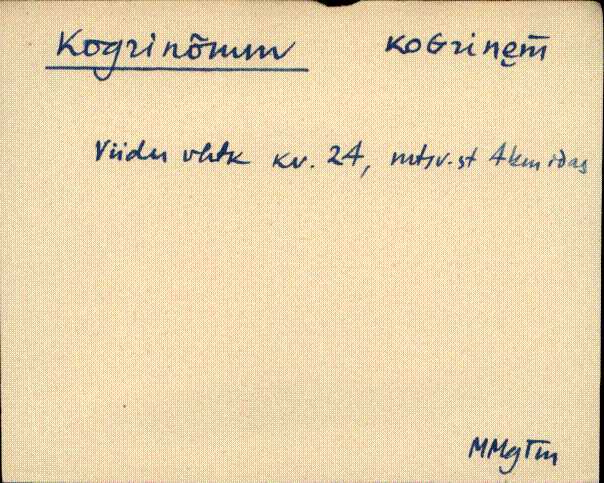 Kogrinõmm KOGrinẹm̅
Viidu vhtk kv. 24, mtsv.st 4km idas
MMgTm